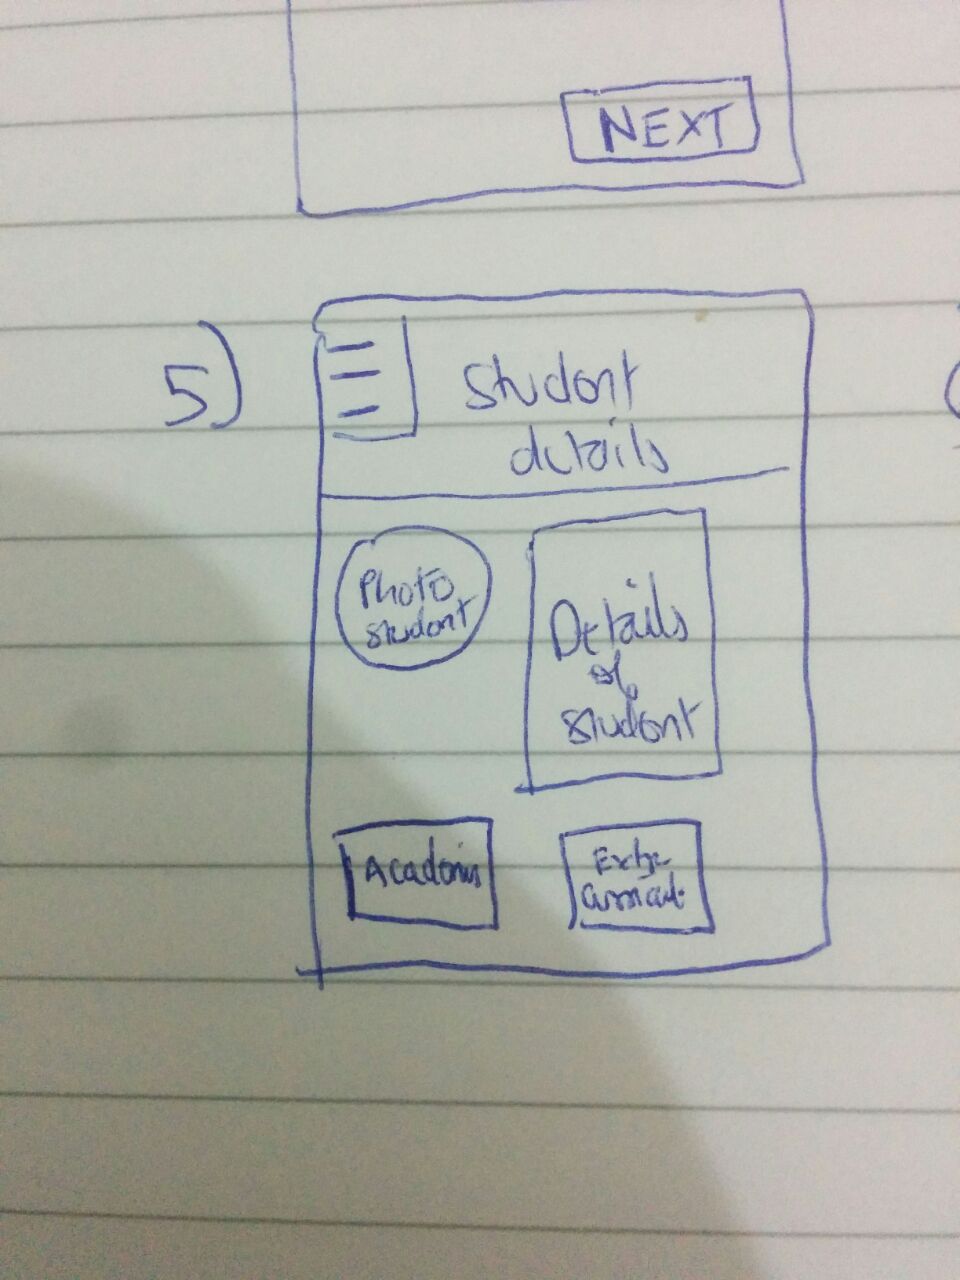 NEXT
5)
Student
details
Photo
student
Details
of
student
Academis
Extra